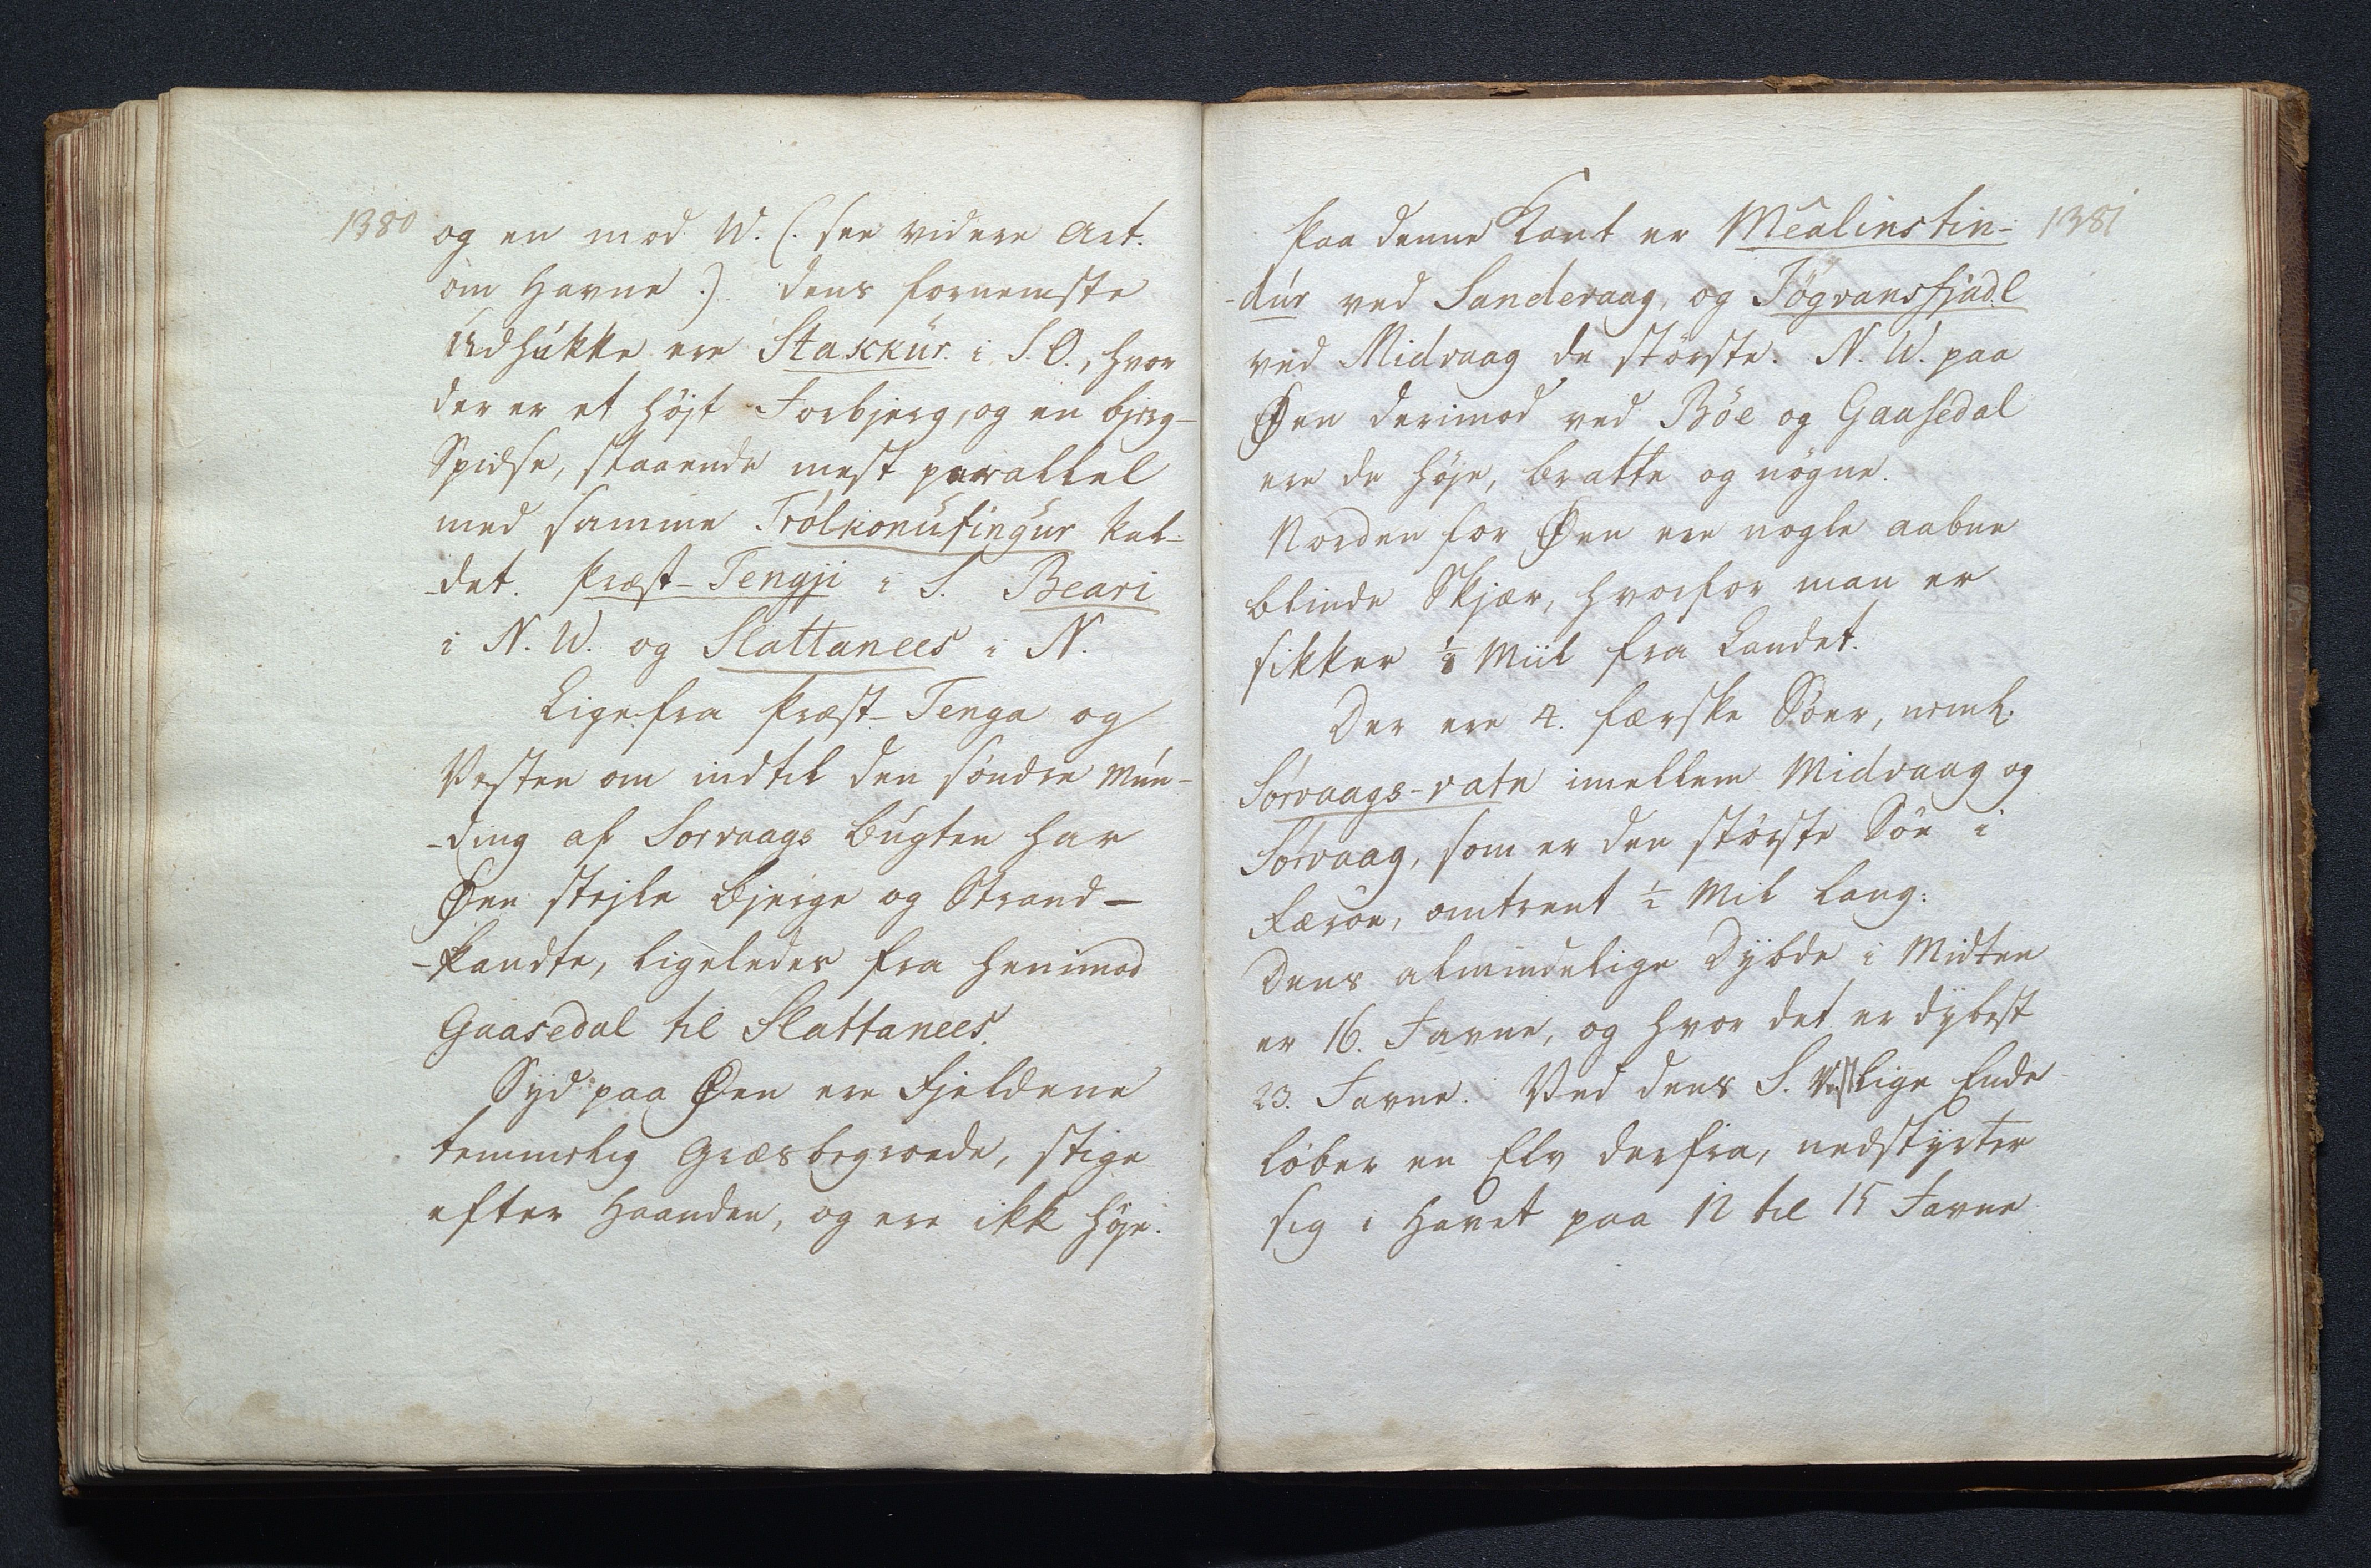 1380
og en mod W. (: see videre Art.
om Havne :) dens fornemste
Udhúkke ere Stakkúr i S.O., hvor
der er et højt Forbjerg, og en bjerg-
Spidse, staaende mest parallel
med samme Trólkonúfingúr kal-
-det. Præst-Tengji i S. Beari
i N.W. og Slattanees i N.
Lige fra Præst-Tenga og
Vesten om indtil den söndre Mún-
-ding af Sorvaags Búgten har
Øen stejle Bjerge og Strand-
-kandte, ligeledes fra henimod
Gaasedal til Slattanees.
Syd paa Øen ere Fjeldene
temmelig Græsbegroede, stige
efter Haanden, og ere ikk höje.
1381
Paa denne Kant er Mêalinstin-
-dúr ved Sandevaag, og Tögvansfjadl
ved Midvaag de störste. N.W. paa
Øen derimod ved Böe og Gaasedal
ere de höje, bratte og nögne.
Norden for Øen ere nogle aabne
blinde Skjær, hvorfor man er
sikker ⅛ Miil fra Landet.
Der ere 4. færske Söer, neml.
Sórvaags-vatn imellem Midvaag og
Sórvaag, som er den störste Söe i
Færöe, omtrent ½ Mil lang.
Dens almindelige Dÿbde i Midten
er 16. Favne, og hvor det er dÿbest
23. Favne. Ved dens S. Vestlige Ende
löber en Elv derfra, nedstÿrter
sig i Havet paa 12 til 15 Favne